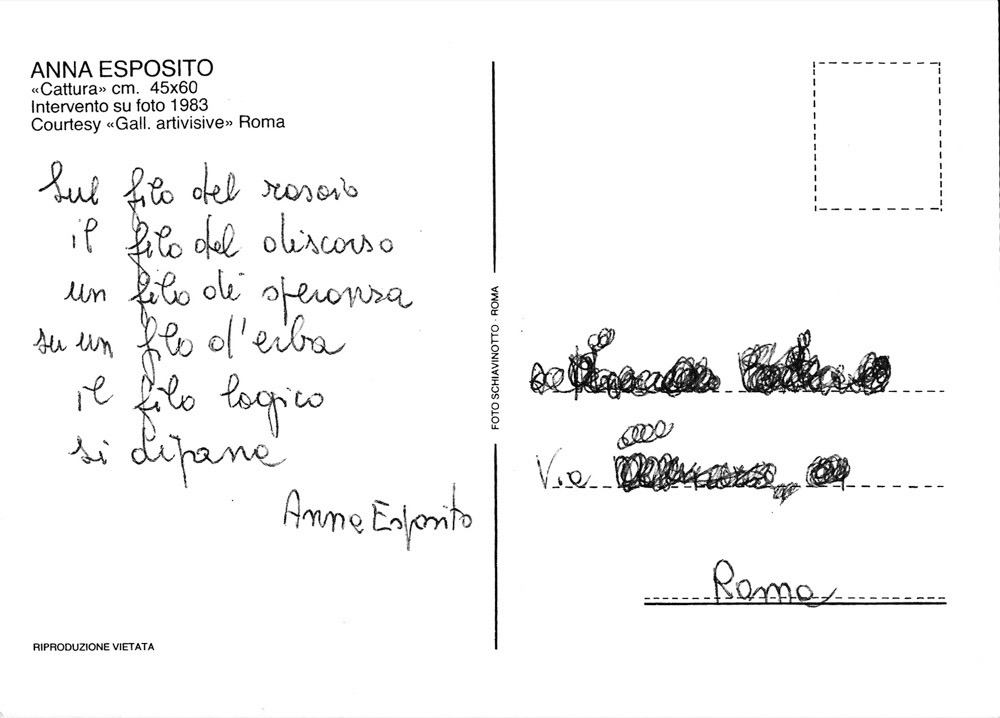 ANNA ESPOSITO
«Cattura» cm. 45x60
Intervento su foto 1983
Courtesy «Gall. artivisive» Roma
Sul filo del rasoio
il filo del discorso
un filo di speranza
su un filo d'erba
il filo logico
si dipana
Anna Esposito
RIPRODUZIONE VIETATA
FOTO SCHIAVINOTTO - ROMA
Via
Roma